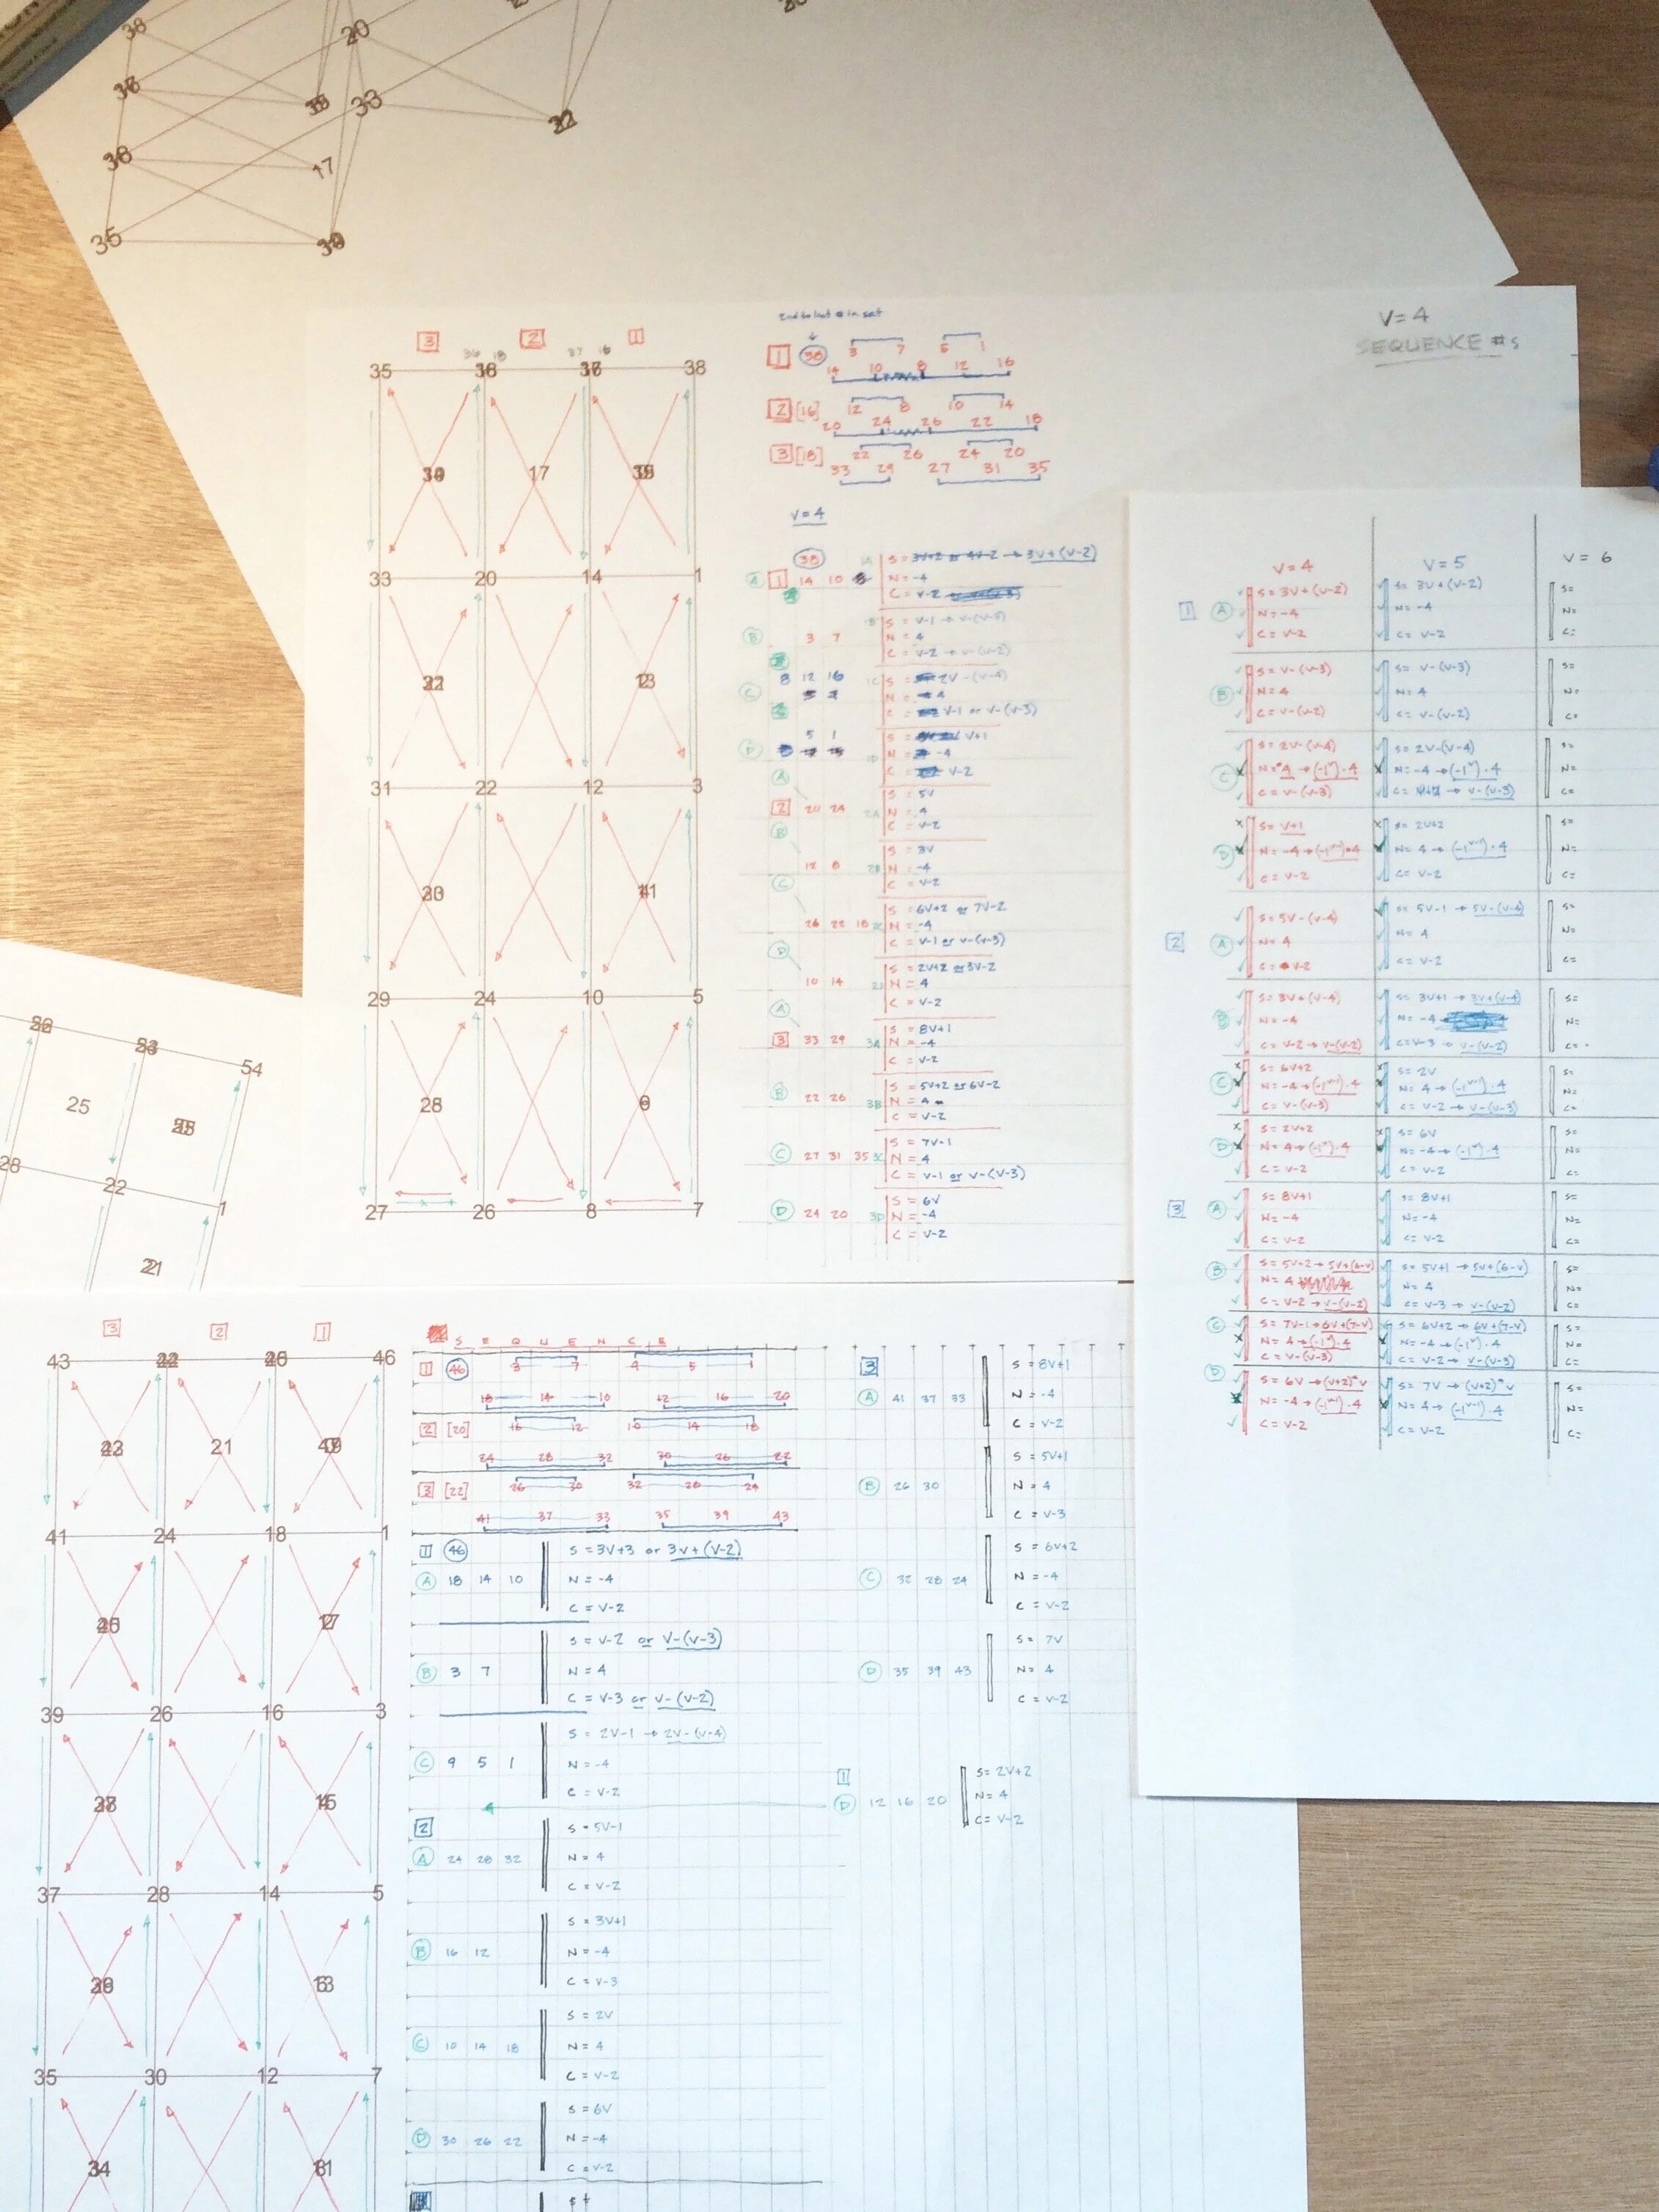 20
33
17
22
35
2nd to last # in set
V=4
SEQUENCE #s
3 2 1
36 18 37 16
35 38
17
33 20 14 1
31 22 12 3
29 24 10 5
28
27 26 8 7
1 38 3 7 5 1
14 10 8 12 16
2 [16] 12 8 10 14
20 24 26 22 18
3 [18] 22 26 24 20
33 29 27 31 35
V=4
38
A 1 14 10 1A S = 3V+2 or 4V-2 → 3V+(V-2)
N = -4
C = V-2
B 3 7 1B S = V-1 → V-(V-3)
N = 4
C = V-2 → V-(V-2)
C 8 12 16 1C S = 2V-(V-4)
N = 4
C = V-1 or V-(V-3)
D 5 1 1D S = V+1
N = -4
C = V-2
A 2 20 24 2A S = 5V
N = 4
C = V-2
B 12 8 2B S = 3V
N = -4
C = V-2
C 26 22 18 2C S = 6V+2 or 7V-2
N = -4
C = V-1 or V-(V-3)
D 10 14 2D S = 2V+2 or 3V-2
N = 4
C = V-2
A 3 33 29 3A S = 8V+1
N = -4
C = V-2
B 22 26 3B S = 5V+2 or 6V-2
N = 4
C = V-2
C 27 31 35 3C S = 7V-1
N = 4
C = V-1 or V-(V-3)
D 24 20 3D S = 6V
N = -4
C = V-2
V=4 V=5 V=6
1 A S=3V+(V-2) S= 3V+(V-2) S=
N=-4 N=-4 N=
C=V-2 C=V-2 C=
B S=V-(V-3) S= V-(V-3) S=
N=4 N=4 N=
C=V-(V-2) C=V-(V-2) C=
C S=2V-(V-4) S=2V-(V-4) S=
N=4 →(-1^V)·4 N=-4→(-1^V)·4 N=
C=V-(V-3) C= → V-(V-3) C=
D S=V+1 S= 2V+2 S=
N=-4→(-1^V-1)·4 N= 4→(-1^V-1)·4 N=
C=V-2 C=V-2 C=
2 A S=5V-(V-4) S= 5V-1 → 5V-(V-4) S=
N=4 N= 4 N=
C= V-2 C=V-2 C=
B S=3V+(V-4) S= 3V+1 → 3V+(V-4) S=
N=-4 N=-4 N=
C=V-2→V-(V-2) C=V-3 → V-(V-2) C=
C S=6V+2 S= 2V S=
N=-4→(-1^V-1)·4 N= 4→(-1^V-1)·4 N=
C=V-(V-3) C= V-2→V-(V-3) C=
D S=2V+2 S= 6V S=
N=4→(-1^V)·4 N=-4→(-1^V)·4 N=
C=V-2 C=V-2 C=
3 A S=8V+1 S= 8V+1 S=
N=-4 N=-4 N=
C=V-2 C=V-2 C=
B S=5V+2→5V+(6-V) S= 5V+1 → 5V+(6-V) S=
N=4 N= 4 N=
C=V-2→V-(V-2) C=V-3 → V-(V-2) C=
C S=7V-1→6V+(7-V) S= 6V+2→6V+(7-V) S=
N=4→(-1^V)·4 N=-4→(-1^V)·4 N=
C=V-(V-3) C=V-2→V-(V-3) C=
D S=6V→(V+2)*V S= 7V→(V+2)*V S=
N=-4→(-1^V-1)·4 N= 4→(-1^V-1)·4 N=
C=V-2 C=V-2 C=
54
25
28 22 1
21
3 2 1
43 46
21
41 24 18 1
39 26 16 3
37 28 14 5
35 30 12 7
34
SEQUENCE
1 46 3 7 9 5 1
18 14 10 12 16 20
2 [20] 16 12 10 14 18
24 28 32 30 26 22
3 [22] 26 30 32 28 24
41 37 33 35 39 43
1 46 S = 3V+3 or 3V+(V-2)
A 18 14 10 N = -4
C = V-2
S = V-2 or V-(V-3)
B 3 7 N = 4
C = V-3 or V-(V-2)
S = 2V-1 → 2V-(V-4)
C 9 5 1 N = -4
C = V-2
2 S = 5V-1
A 24 28 32 N = 4
C = V-2
S = 3V+1
B 16 12 N = -4
C = V-3
S = 2V
C 10 14 18 N = 4
C = V-2
S = 6V
D 30 26 22 N = -4
C = V-2
3 S = 8V+1
A 41 37 33 N = -4
C = V-2
S = 5V+1
B 26 30 N = 4
C = V-3
S = 6V+2
C 32 28 24 N = -4
C = V-2
S = 7V
D 35 39 43 N = 4
C = V-2
1 S= 2V+2
D 12 16 20 N= 4
C= V-2